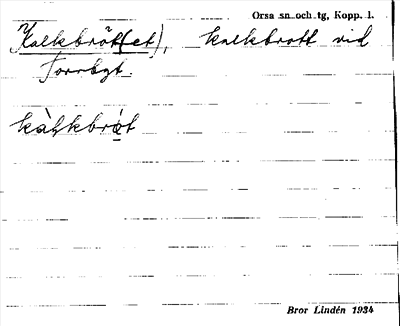 Orsa sn och tg, Kopp. l.
Kalkbröt(et), kalkbrott vid
Torrbyt.
Bror Lindén 1934